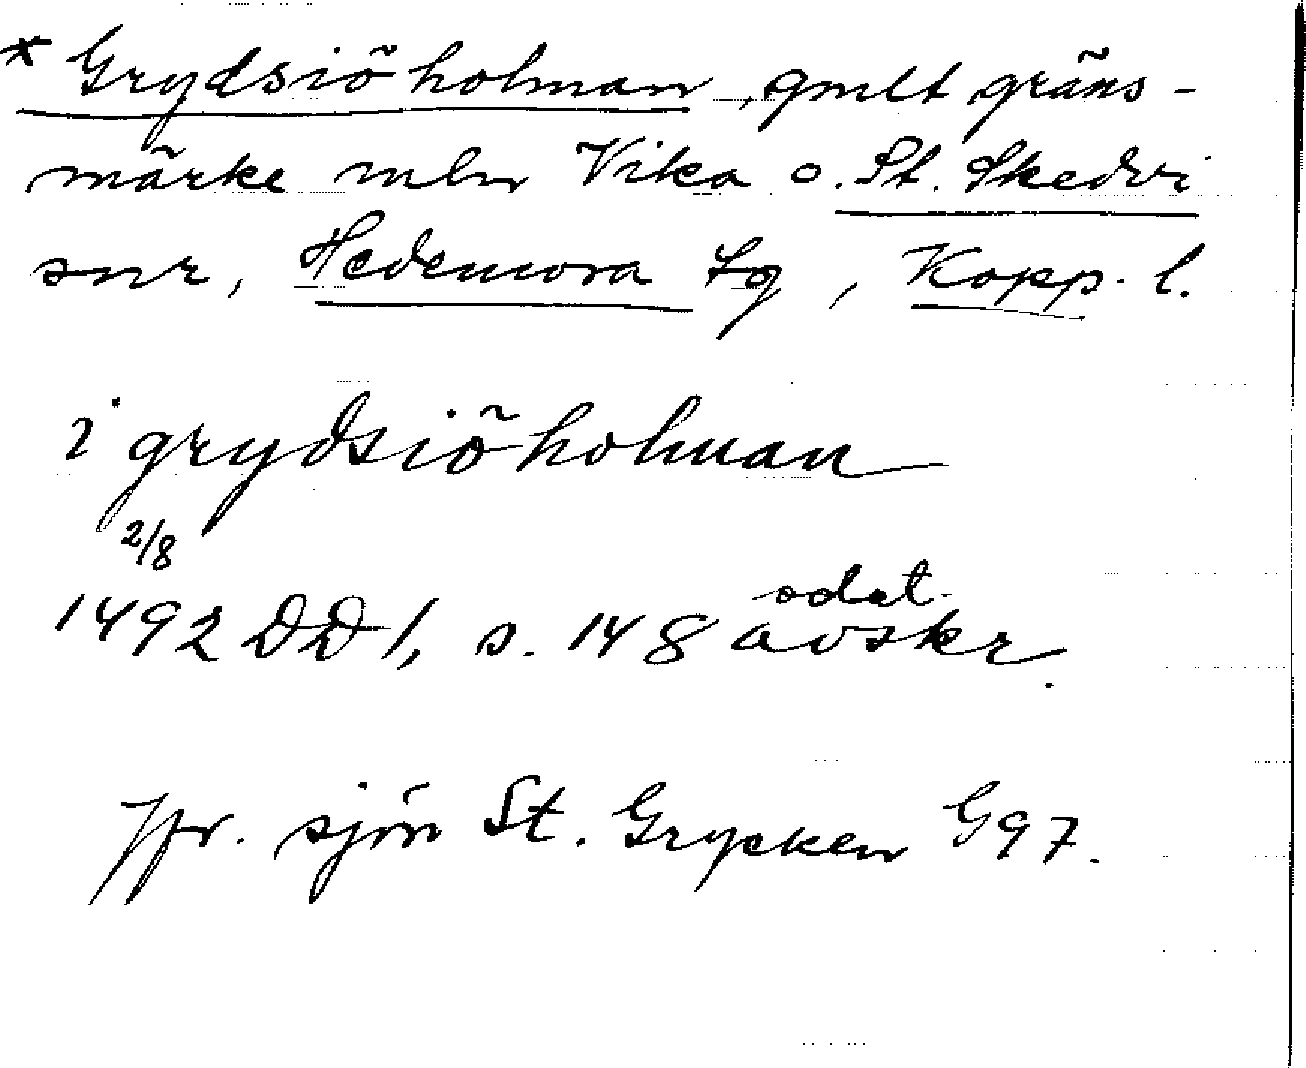 * Grydsiöholman, gmlt gräns-
märke mln Vika o. St. Skedvi
snr, Hedemora tg, Kopp. l.
i grydsiöholman
2/8
odat.
1492 DD 1, s. 148 avskr.
Jfr. sjön St. Grycken G97.